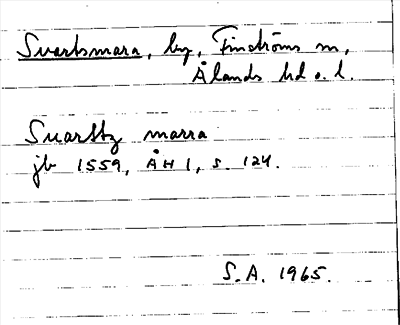 Svartsmara, by, Finströms sn,
Ålands hd o. l.
Suarttz marra
jb 1559, ÅH 1, s. 124.
S.A. 1965.